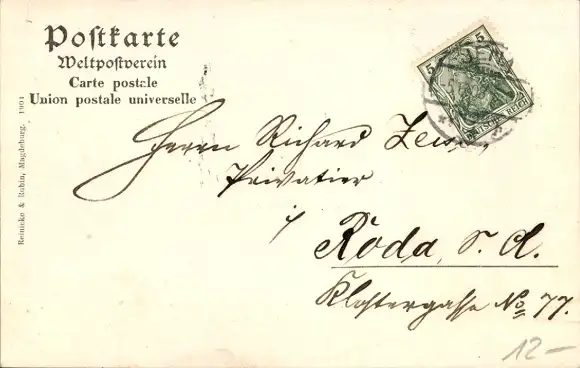 Postkarte
Weltpostverein
Carte postale
Union postale universelle
Reinicke & Rubin, Magdeburg. 1901
5 5
DEUTSCHES REICH
Herrn Richard
Privatier
i/
Roda, S. A.
Klostergasse No 77.
12-